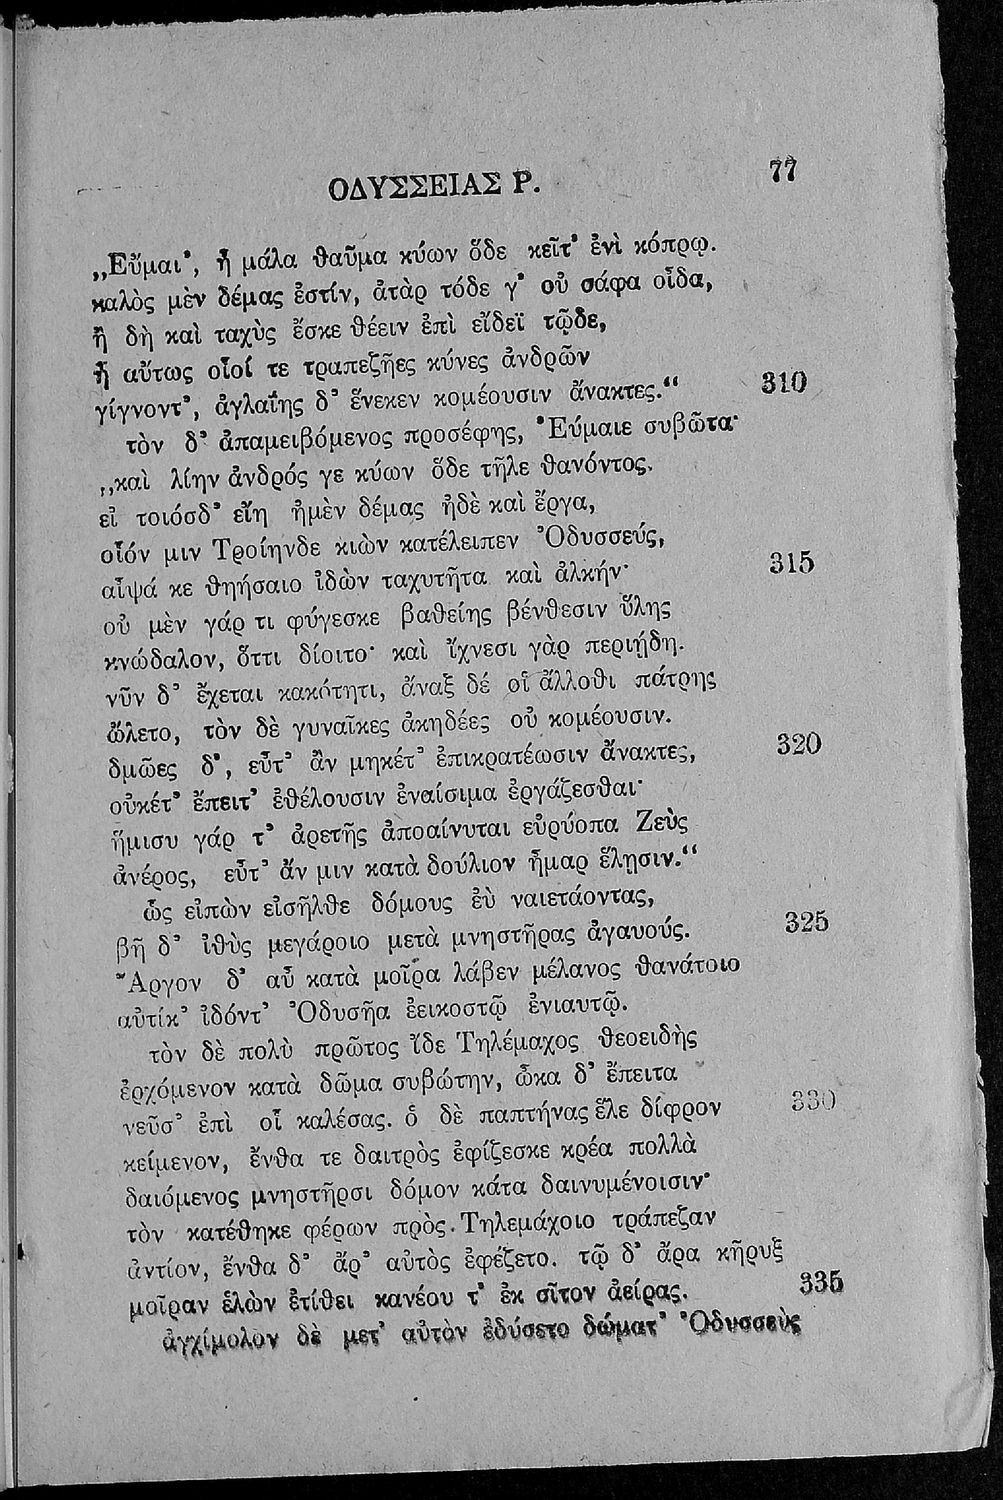 ΟΔΥΣΣΕΙΑΣ Ρ. 77
„Εὔμαι', ἦ μάλα θαῦμα κύων ὅδε κεῖτ' ἐνὶ κόπρῳ.
καλὸς μὲν δέμας ἐστίν, ἀτὰρ τόδε γ' οὐ σάφα οἶδα,
ἢ δὴ καὶ ταχὺς ἔσκε θέειν ἐπὶ εἴδεϊ τῷδε,
ἦ αὔτως οἷοί τε τραπεζῆες κύνες ἀνδρῶν
γίγνοντ', ἀγλαΐης δ' ἕνεκεν κομέουσιν ἄνακτες.“ 310
τὸν δ' ἀπαμειβόμενος προσέφης, Εὔμαιε συβῶτα·
„καὶ λίην ἀνδρός γε κύων ὅδε τῆλε θανόντος.
εἰ τοιόσδ' εἴη ἠμὲν δέμας ἠδὲ καὶ ἔργα,
οἷόν μιν Τροίηνδε κιὼν κατέλειπεν Ὀδυσσεύς,
αἶψά κε θηήσαιο ἰδὼν ταχυτῆτα καὶ ἀλκήν· 315
οὐ μὲν γάρ τι φύγεσκε βαθείης βένθεσιν ὕλης
κνώδαλον, ὅττι δίοιτο· καὶ ἴχνεσι γὰρ περιῄδη.
νῦν δ' ἔχεται κακότητι, ἄναξ δέ οἱ ἄλλοθι πάτρης
ὤλετο, τὸν δὲ γυναῖκες ἀκηδέες οὐ κομέουσιν.
δμῶες δ', εὖτ' ἂν μηκέτ' ἐπικρατέωσιν ἄνακτες, 320
οὐκέτ' ἔπειτ' ἐθέλουσιν ἐναίσιμα ἐργάζεσθαι·
ἥμισυ γάρ τ' ἀρετῆς ἀποαίνυται εὐρύοπα Ζεὺς
ἀνέρος, εὖτ' ἄν μιν κατὰ δούλιον ἦμαρ ἕλῃσιν.“
ὣς εἰπὼν εἰσῆλθε δόμους ἐὺ ναιετάοντας,
βῆ δ' ἰθὺς μεγάροιο μετὰ μνηστῆρας ἀγαυούς. 325
Ἄργον δ' αὖ κατὰ μοῖρα λάβεν μέλανος θανάτοιο
αὐτίκ' ἰδόντ' Ὀδυσῆα ἐεικοστῷ ἐνιαυτῷ.
τὸν δὲ πολὺ πρῶτος ἴδε Τηλέμαχος θεοειδὴς
ἐρχόμενον κατὰ δῶμα συβώτην, ὦκα δ' ἔπειτα
νεῦσ' ἐπὶ οἷ καλέσας. ὁ δὲ παπτήνας ἕλε δίφρον 330
κείμενον, ἔνθα τε δαιτρὸς ἐφίζεσκε κρέα πολλὰ
δαιόμενος μνηστῆρσι δόμον κάτα δαινυμένοισιν·
τὸν κατέθηκε φέρων πρὸς Τηλεμάχοιο τράπεζαν
ἀντίον, ἔνθα δ' ἄρ' αὐτὸς ἐφέζετο. τῷ δ' ἄρα κῆρυξ
μοῖραν ἑλὼν ἐτίθει κανέου τ' ἐκ σῖτον ἀείρας. 335
ἀγχίμολον δὲ μετ' αὐτὸν ἐδύσετο δώματ' Ὀδυσσεὺς